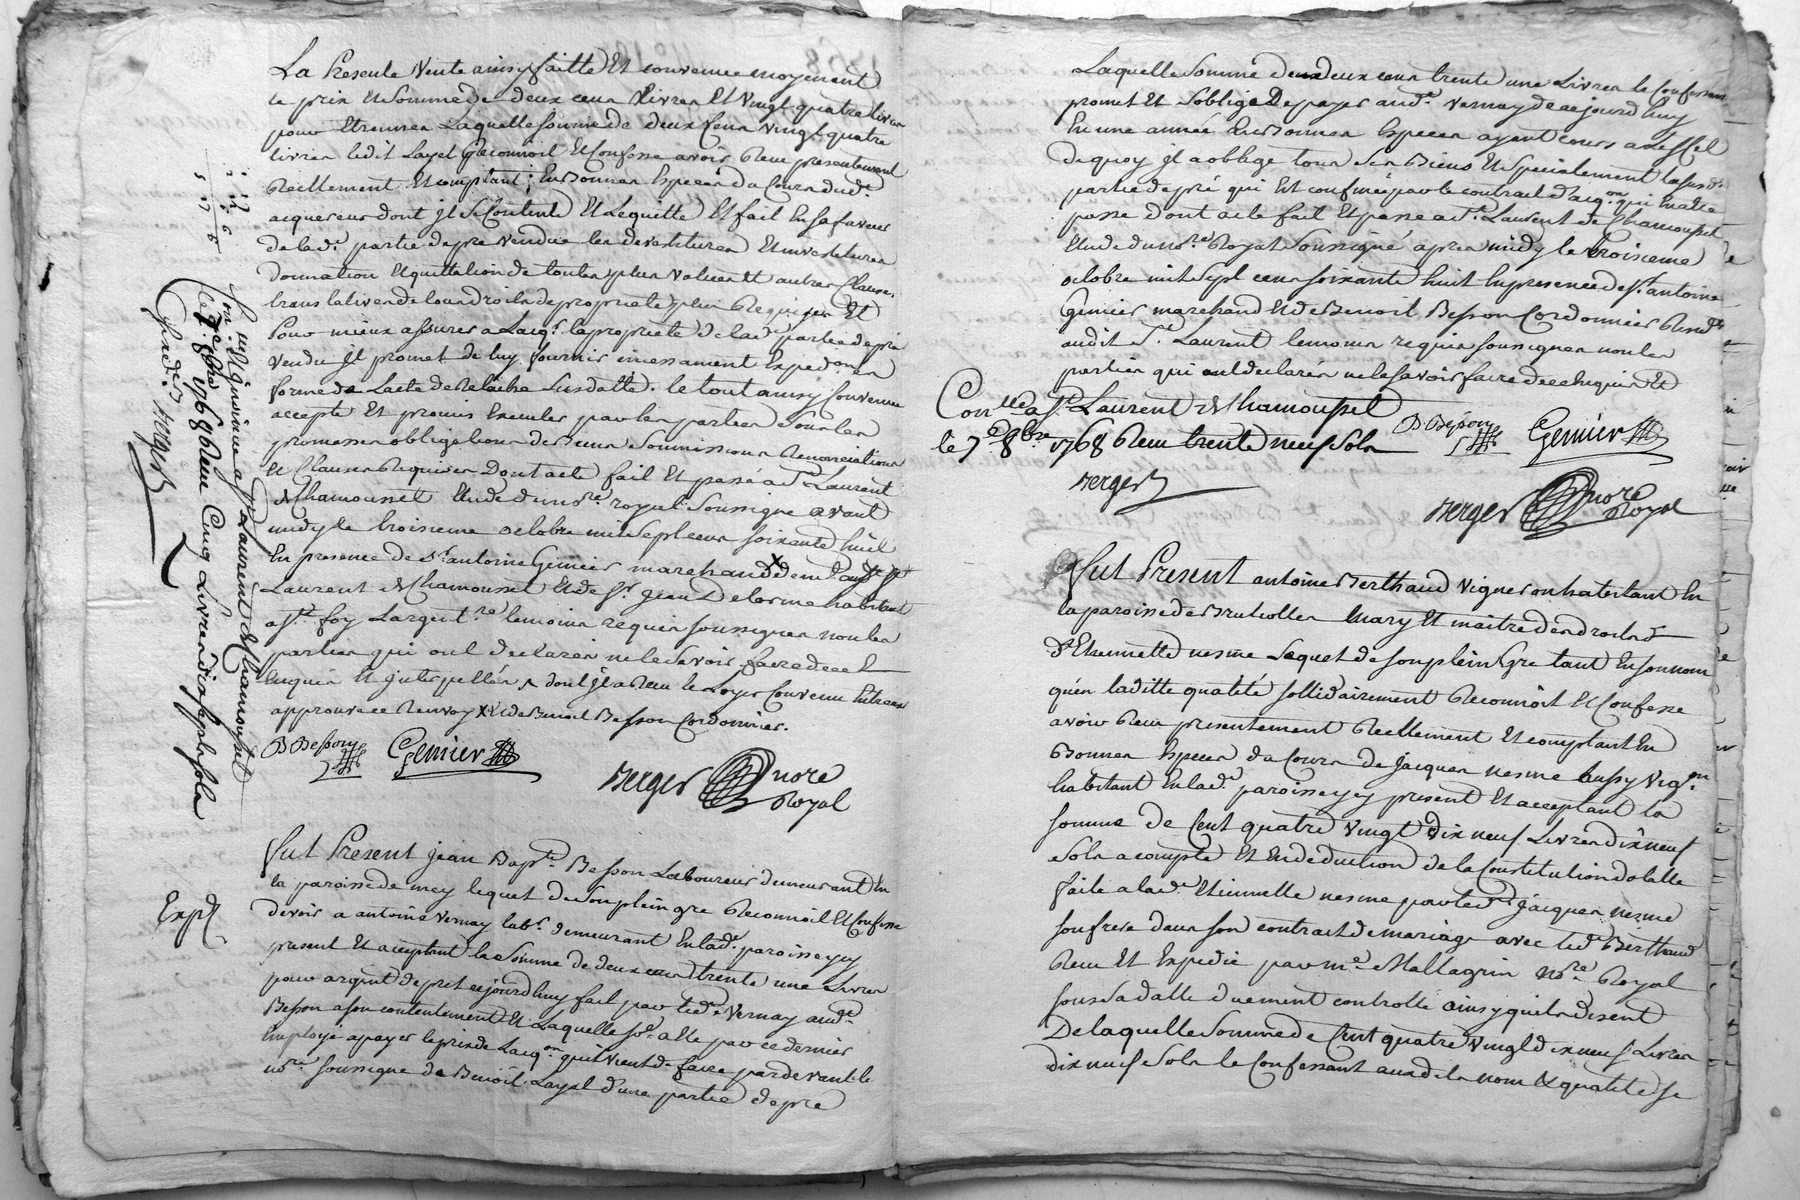 La Presente vente ainsy faitte Et convenue moyenent
le prix et somme de deux cens Livres Et vingt quatre livres
pour Etrennes Laquelle somme de deux Cens vingt quatre
livres ledit Layel Reconnoit Et Confesse avoir Reçu presentement
Réellement Et comptant; En Bonnes Especes du Cours dud.
acquereur dont jl se Contente Et Le quitte Et fait En sa faveur
de lad.e partie de pré vendue les devestitures Et investitures
donnation Et quittation de toutes plus values Et autres Clauses
translatives de tous droits de propriété plus Requises Et
Pour mieux assurer a L'acq.r la propriete de lad.e partie de pré
vendu jl promet de luy fournir incessament Exped.on en
forme de L'acte de Relache Susdatté. le tout ainsy Convenu
accepté Et promis Executer par les parties sous les
promesses obligations de biens soumissions Renonciations
Et Clauses Requises Dont acte fait Et passé a S.t Laurent
de Chamousset Etude du no.re royal Soussigné avant
midy le troisieme octobre mil sept cens soixante huit
En presence de S.r antoine Genier marchand X dem.t aud.t S.t
Laurent de Chamousset Et de S.r jean Delorme habitant
a S.te foy Largent.re temoins requis soussignes non les
parties qui ont declarés ne le savoir faire de ce
Enquis Et jnterpellés, dont jl a Reçu le Loyer Convenu Entreux
approuvé ce Renvoy X Et de Benoit Besson Cordonnier.
B Besson Genier
Berger nore
Royal
S.on Et Ginsinue a S.t Laurent de Chamousset
le 7e 8bre 1768 Reçu Cinq Livres dix sept sols
Berger
Fut Present jean Bap.te Besson Laboureur demeurant En
la paroisse de mey lequel de son plein gre Reconnoit Et Confesse
devoir a antoine Vernay lab.r demeurant En lad.e paroisse jcy
present Et acceptant la Somme de deux cens trente une Livres
pour argent de pret cejourdhuy fait par led.t Vernay aud.t
Besson a son contentement Et Laquelle so.e a Ete par ce dernier
Employé a payer le prix de L'acq.on qu'il vient de faire pardevant le
no.re soussigné de Benoit Layel d'une partie de pré
Exp.é
Laquelle Somme de deux cens trente une Livres le Confessant
promet Et s'oblige De payer aud.t Vernay de cejourdhuy
En une année En Bonnes Especes ayant Cours a cet Effet
De quoy jl a oblige tous ses Biens Et Specialement la susd.e
partie de pré qui Est confinée par le contract d'acq.on qui En a Ete
passé Dont acte fait Et passé a S.t Laurent de Chamousset
Etude du no.re Royal Soussigné apres midy le troisieme
octobre mil sept cens soixante huit En presence de S.r antoine
Genier marchand Et de Benoit Besson Cordonnier Resid.s
audit S.t Laurent temoins requis soussignes non les
parties qui ont declarés ne le savoir faire de ce Enquis Et
Con.lle a S.t Laurent de Chamousset
le 7e 8bre 1768 Reçu trente neuf sols
B Besson Genier
Berger
Berger nore
Royal
Fut Present antoine Berthaud Vigneron habitant En
la paroisse de Brulioles mary Et maitre des droits
d'Etiennette nesme Lequel de son plein gre tant En son nom
qu'en laditte qualité sollidairement Reconnoit Et Confesse
avoir Reçu presentement Réellement Et comptant En
Bonnes Especes du Cours de jacques nesme aussy Vig.on
habitant En lad.e paroisse jcy present Et acceptant la
somme de Cent quatre vingt dix neuf Livres dix neuf
Sols a compte Et En deduction de la Constitution dotalle
faite a lad.e Etiennette nesme par led.t jacques nesme
son frere dans son contract de mariage avec led.t Berthaud
Reçu Et Expedié par m.e Mallagrin No.re Royal
sous sa datte duement controllé ainsy qu'ils disent
De laquelle Somme de Cent quatre vingt dix neuf Livres
dix neuf Sols le Confessant aux dits nom Et qualité se